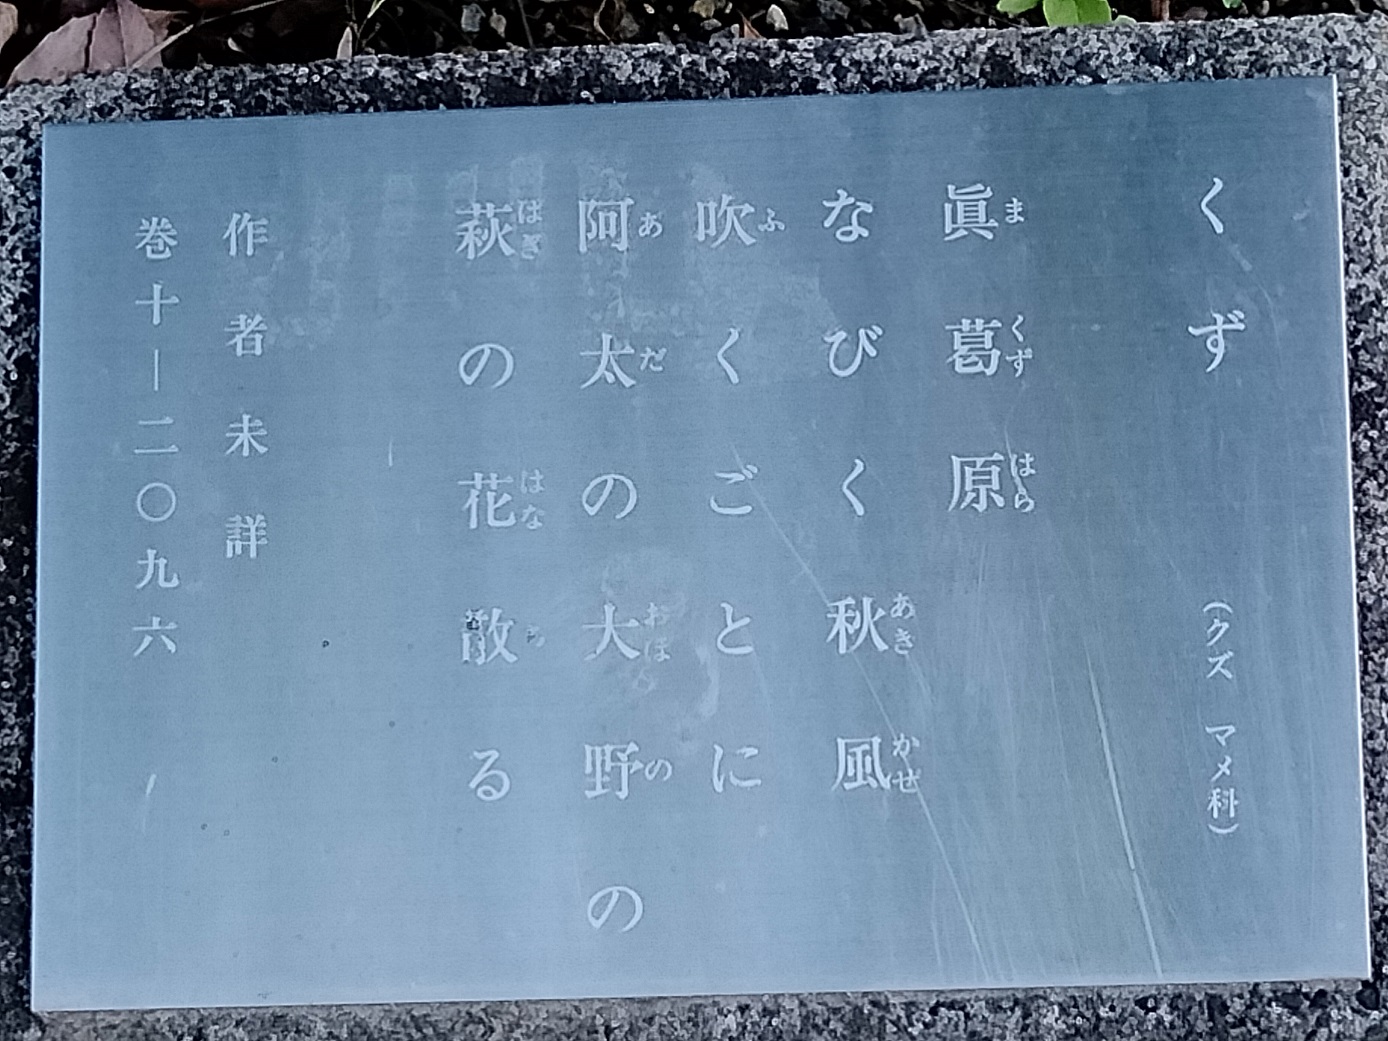 くず (クズ マメ科)
眞葛原
なびく秋風
吹くごとに
阿太の大野の
萩の花散る
作者未詳
巻十―二〇九六